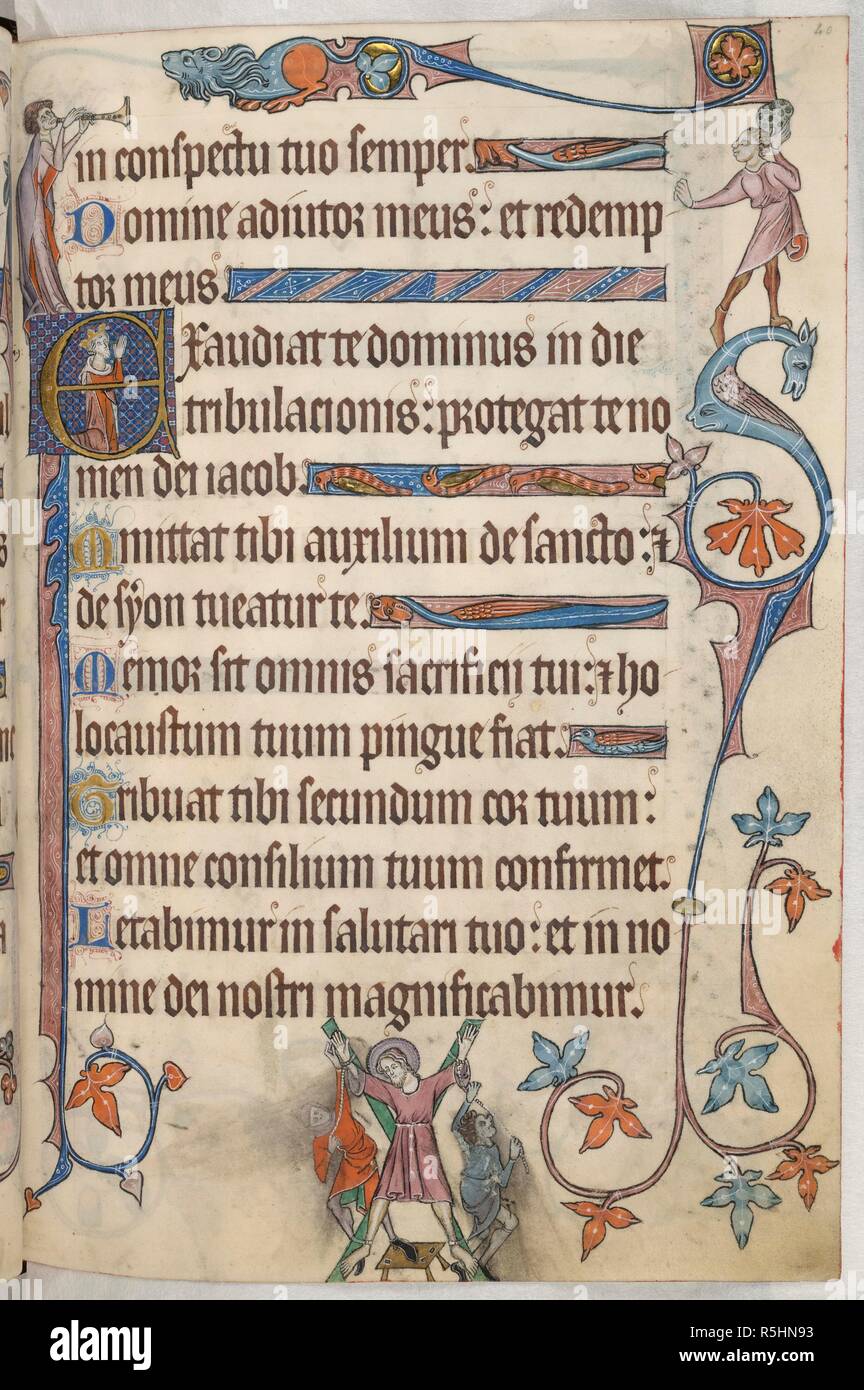 40
in conspectu tuo semper.
Domine adiutor meus: et redemp
tor meus.
Exaudiat te dominus in die
tribulacionis: protegat te no
men dei iacob.
Mittat tibi auxilium de sancto: ⁊
de syon tueatur te.
Memor sit omnis sacrificii tui: ⁊ ho
locaustum tuum pingue fiat.
Tribuat tibi secundum cor tuum:
et omne consilium tuum confirmet.
Letabimur in salutari tuo: et in no
mine dei nostri magnificabimur.
alamy
Image ID: R5HN93
www.alamy.com